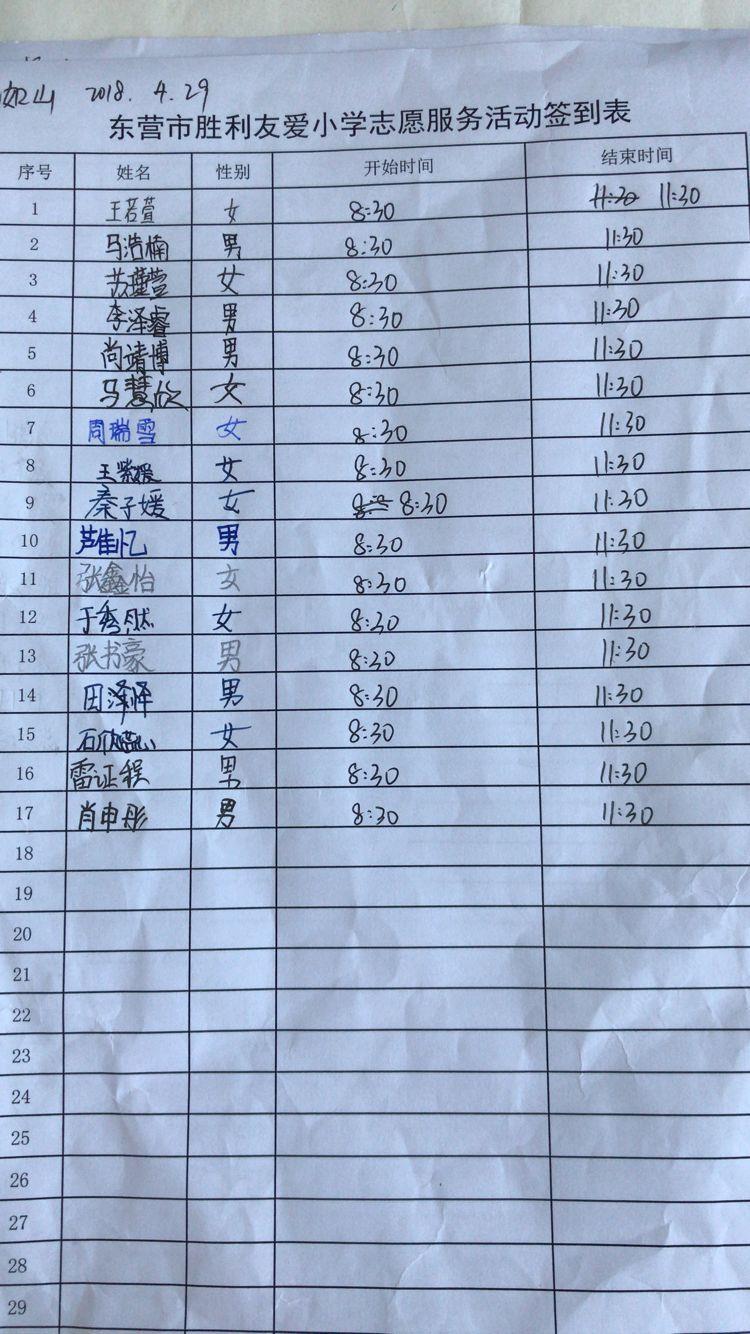 如山 2018.4.29
东营市胜利友爱小学志愿服务活动签到表
序号 姓名 性别 开始时间 结束时间
1 王若萱 女 8:30 11:30 11:30
2 马浩楠 男 8:30 11:30
3 苏瑾萱 女 8:30 11:30
4 李泽睿 男 8:30 11:30
5 尚靖博 男 8:30 11:30
6 马慧欣 女 8:30 11:30
7 周瑞雪 女 8:30 11:30
8 王紫媛 女 8:30 11:30
9 秦子媛 女 8:30 11:30
10 芦佳忆 男 8:30 11:30
11 张鑫怡 女 8:30 11:30
12 于秀然 女 8:30 11:30
13 张书豪 男 8:30 11:30
14 田泽泽 男 8:30 11:30
15 石欣蕊 女 8:30 11:30
16 雷证程 男 8:30 11:30
17 肖申彤 男 8:30 11:30
18
19
20
21
22
23
24
25
26
27
28
29